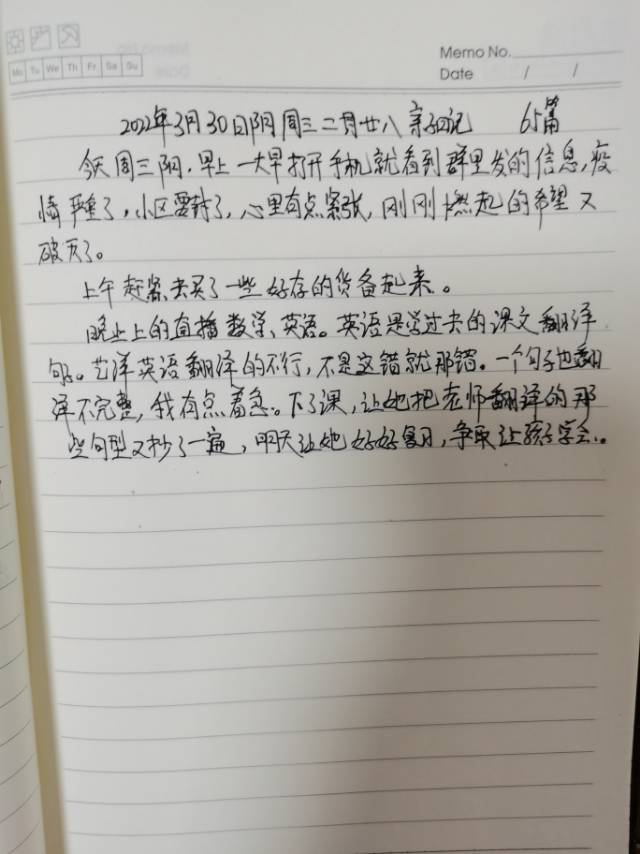 Memo No.
Mo Tu We Th Fr Sa Su
Date / /
2022年3月30日阴周三二月廿八亲子日记 65篇
今天周三阴,早上一大早打开手机就看到群里发的信息,疫
情严重了,小区要封了,心里有点紧张,刚刚燃起的希望又
破灭了。
上午赶紧去买了一些好存的货备起来。
晚上上的直播数学、英语。英语是学过去的课文翻译
句。艺洋英语翻译的不行,不是这错就那错。一个句子也翻
译不完整,我有点着急。下了课,让她把老师翻译的那
些句型又抄了一遍,明天让她好好复习,争取让孩子学会。